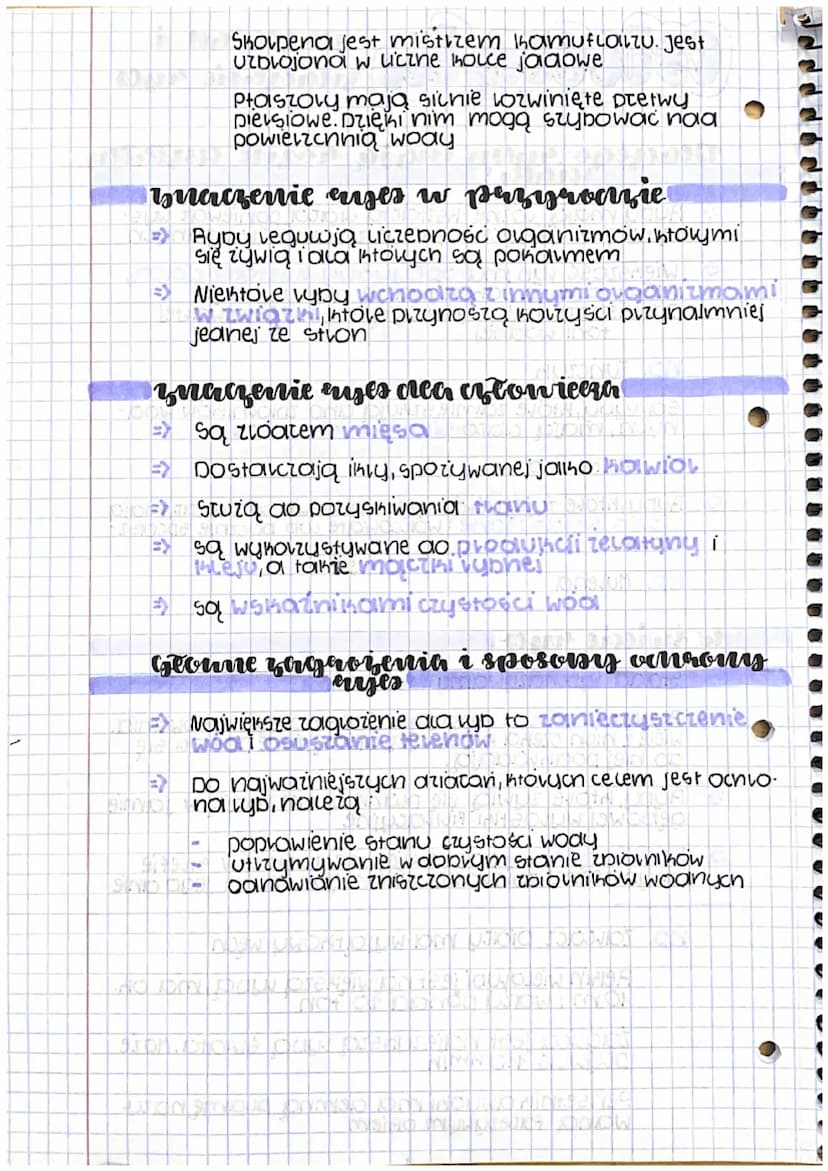 Skorpena jest mistrzem kamuflażu. Jest
uzbrojona w liczne kolce jadowe
Płaszory mają silnie rozwinięte płetwy
piersiowe. Dzięki nim mogą szybować nad
powierzchnią wody
znaczenie ryb w przyrodzie
=> Ryby regulują liczebność organizmów, którymi
się żywią i dla których są pokarmem
=> Niektóre ryby wchodzą z innymi organizmami
w związki, które przynoszą korzyści przynajmniej
jednej ze stron
znaczenie ryb dla człowieka
=> są źródłem mięsa
=> Dostarczają ikry, spożywanej jako kawior
=> Służą do pozyskiwania tranu
=> są wykorzystywane do produkcji żelatyny i
kleju, a także mączki rybnej
=> są wskaźnikami czystości wód
Główne zagrożenia i sposoby ochrony
ryb
=> Największe zagrożenie dla ryb to zanieczyszczenie
wód i osuszanie terenów
=> Do najważniejszych działań, których celem jest ochro-
na ryb, należą
- poprawienie stanu czystości wody
- utrzymywanie w dobrym stanie zbiorników
- odnawianie zniszczonych zbiorników wodnych